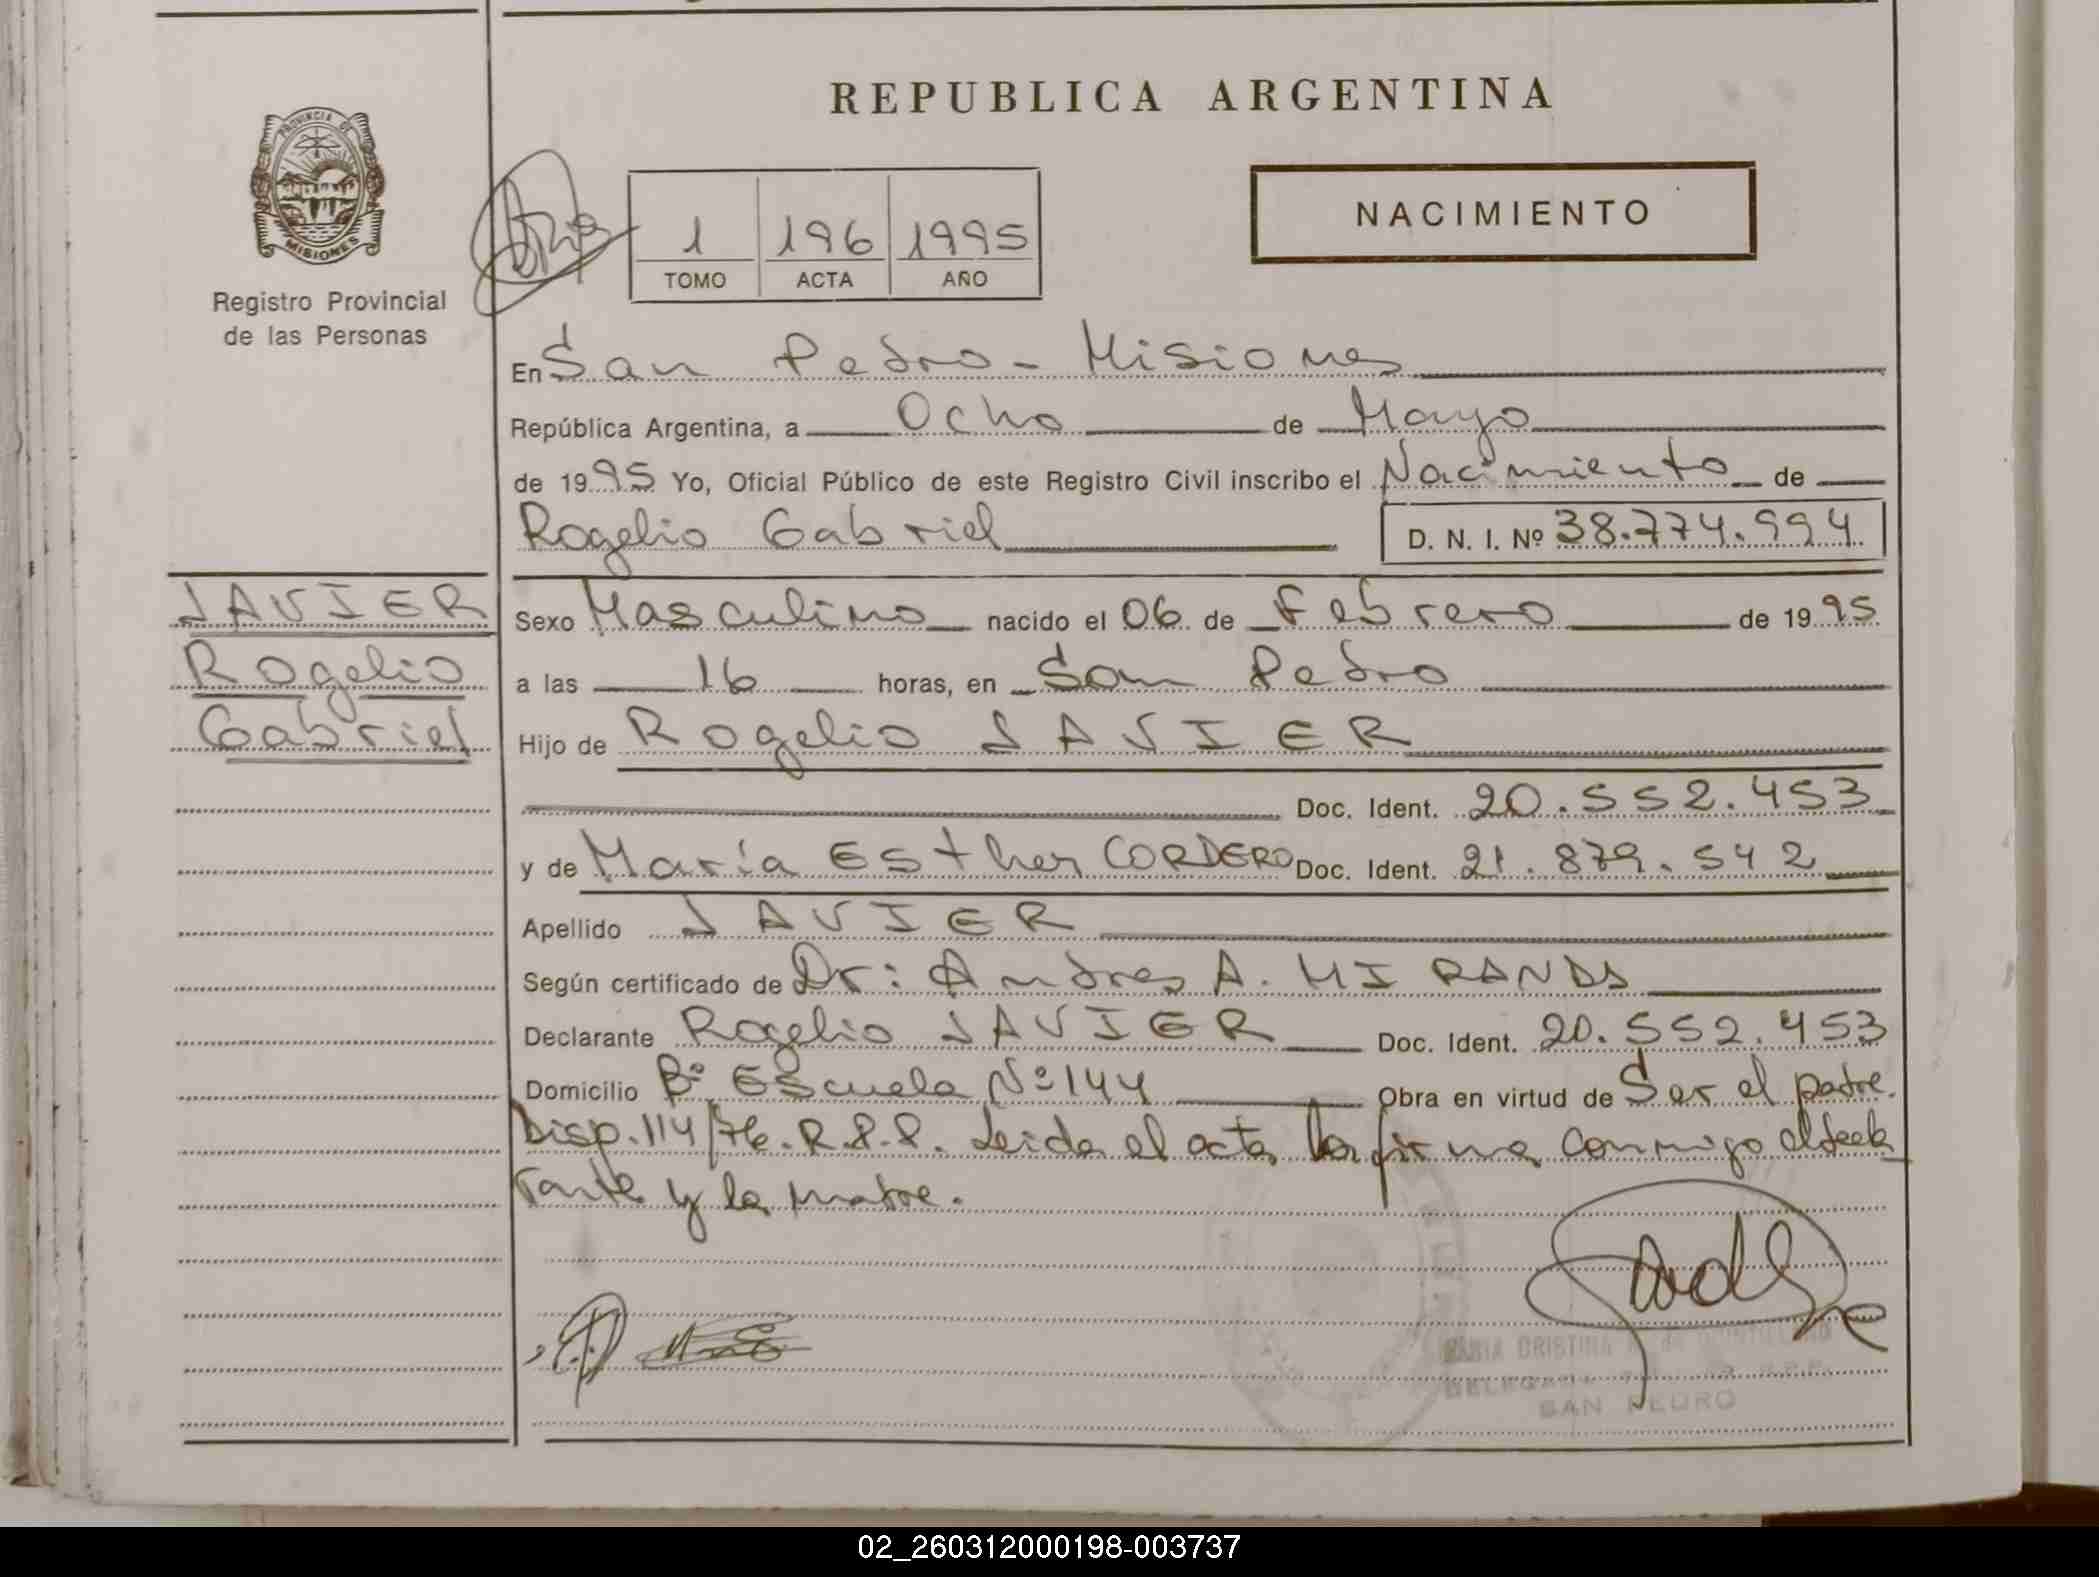 REPUBLICA ARGENTINA
PROVINCIA DE
MISIONES
Registro Provincial
de las Personas
1 196 1995
TOMO ACTA AÑO
NACIMIENTO
En San Pedro - Misiones
República Argentina, a Ocho de Mayo
de 1995 Yo, Oficial Público de este Registro Civil inscribo el Nacimiento de
Rogelio Gabriel D. N. I. Nº 38.774.994
JAVIER
Rogelio
Gabriel
Sexo Masculino nacido el 06 de Febrero de 1995
a las 16 horas, en San Pedro
Hijo de Rogelio JAVIER
Doc. Ident. 20.552.453
y de María Esther CORDERO Doc. Ident. 21.879.542
Apellido JAVIER
Según certificado de Dr: Andres A. MIRANDA
Declarante Rogelio JAVIER Doc. Ident. 20.552.453
Domicilio Bº Escuela Nº 144 Obra en virtud de Ser el padre.
Disp. 114/76. R.P.P. Leida el acta la firma conmigo el decla
rante y la madre.
MARIA CRISTINA
DELEGADA R.P.P.
SAN PEDRO
02_260312000198-003737